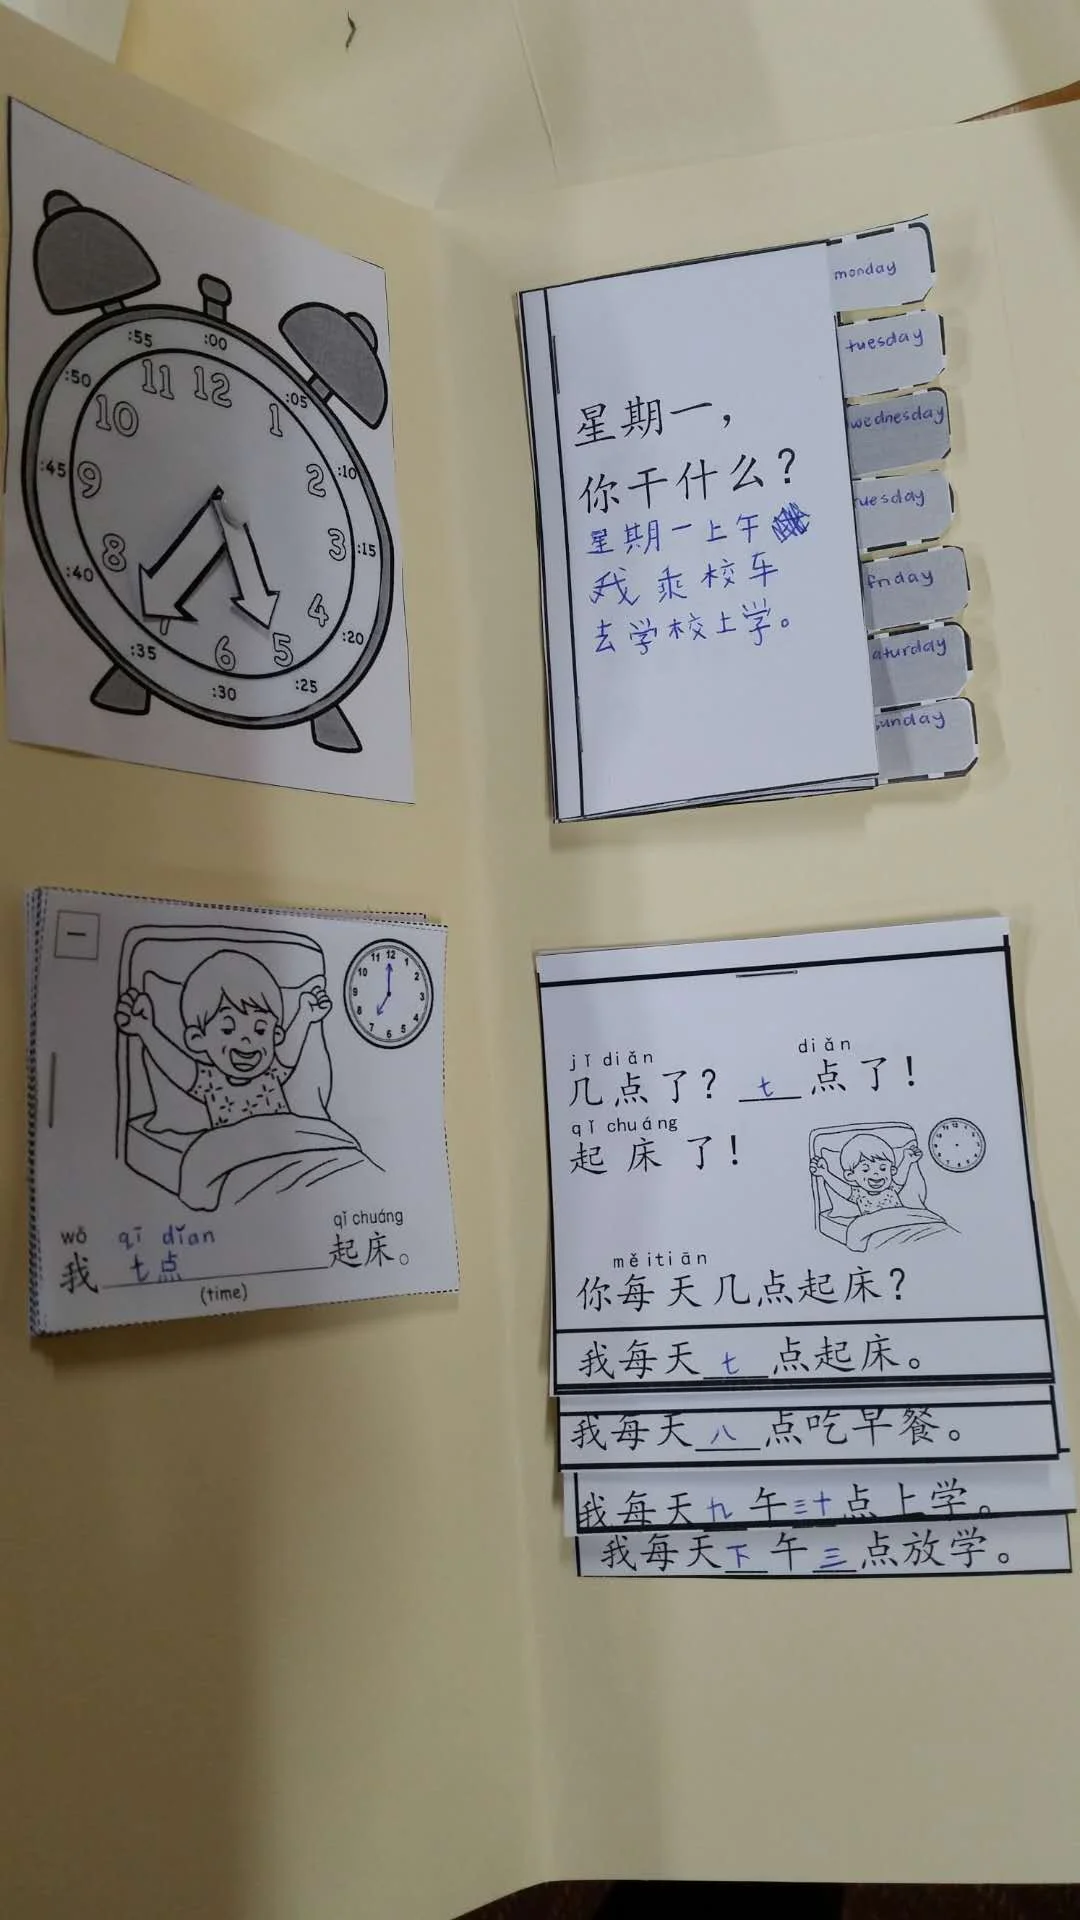 :00
:05
:10
:15
:20
:25
:30
:35
:40
:45
:50
:55
12
1
2
3
4
5
6
8
9
10
11
monday
tuesday
wednesday
uesday
friday
aturday
unday
星期一，
你干什么？
星期一上午
我乘校车
去学校上学。
一
12
1
2
3
4
5
6
7
8
9
10
11
wǒ qī dǐan qǐ chuáng
我 七点 起床。
(time)
jǐ diǎn diǎn
几点了？ 七 点了！
qǐ chuáng
起床了！
měi tiān
你每天几点起床？
我每天 七 点起床。
我每天 八 点吃早餐。
我每天 九 午 三十 点上学。
我每天 下 午 三 点放学。